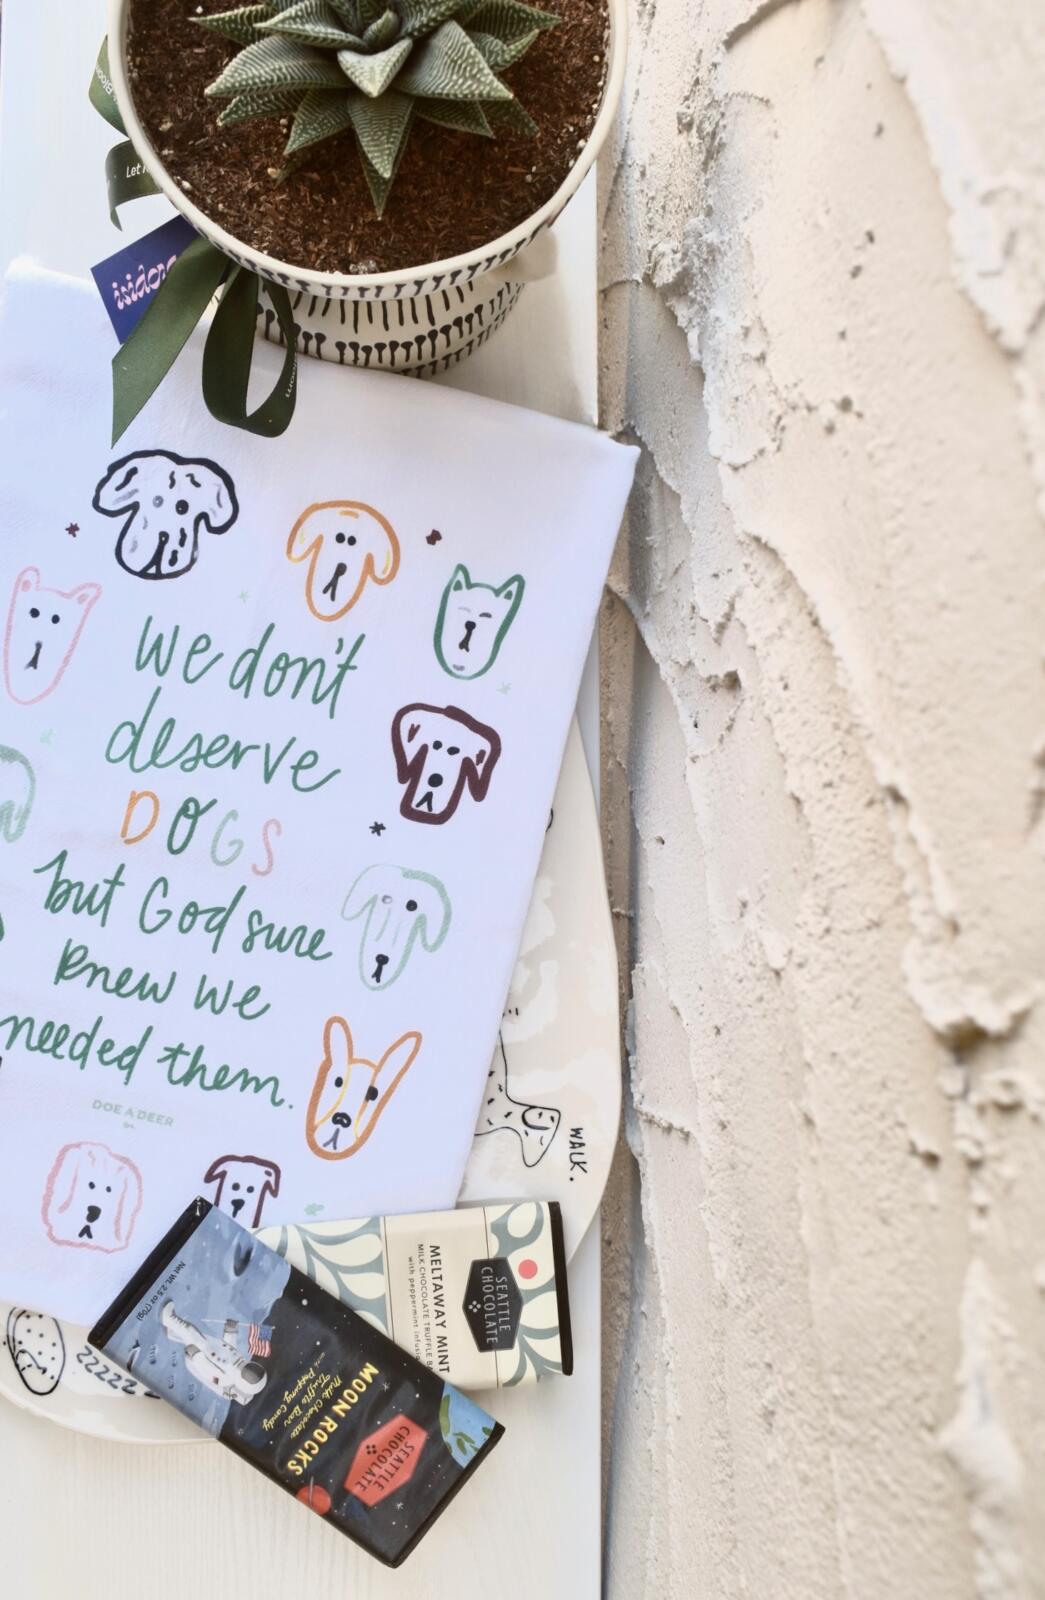 Let
isidora
we don't
deserve
DOGS
but God sure
knew we
needed them.
DOE A DEER
WALK.
MELTAWAY MINT
MILK CHOCOLATE TRUFFLE
with peppermint
SEATTLE
CHOCOLATE
Net Wt. 2.5 oz (70g)
ZZZZZ
MOON ROCKS
Milk Chocolate
Truffle Bar
with Popping Candy
SEATTLE
CHOCOLATE